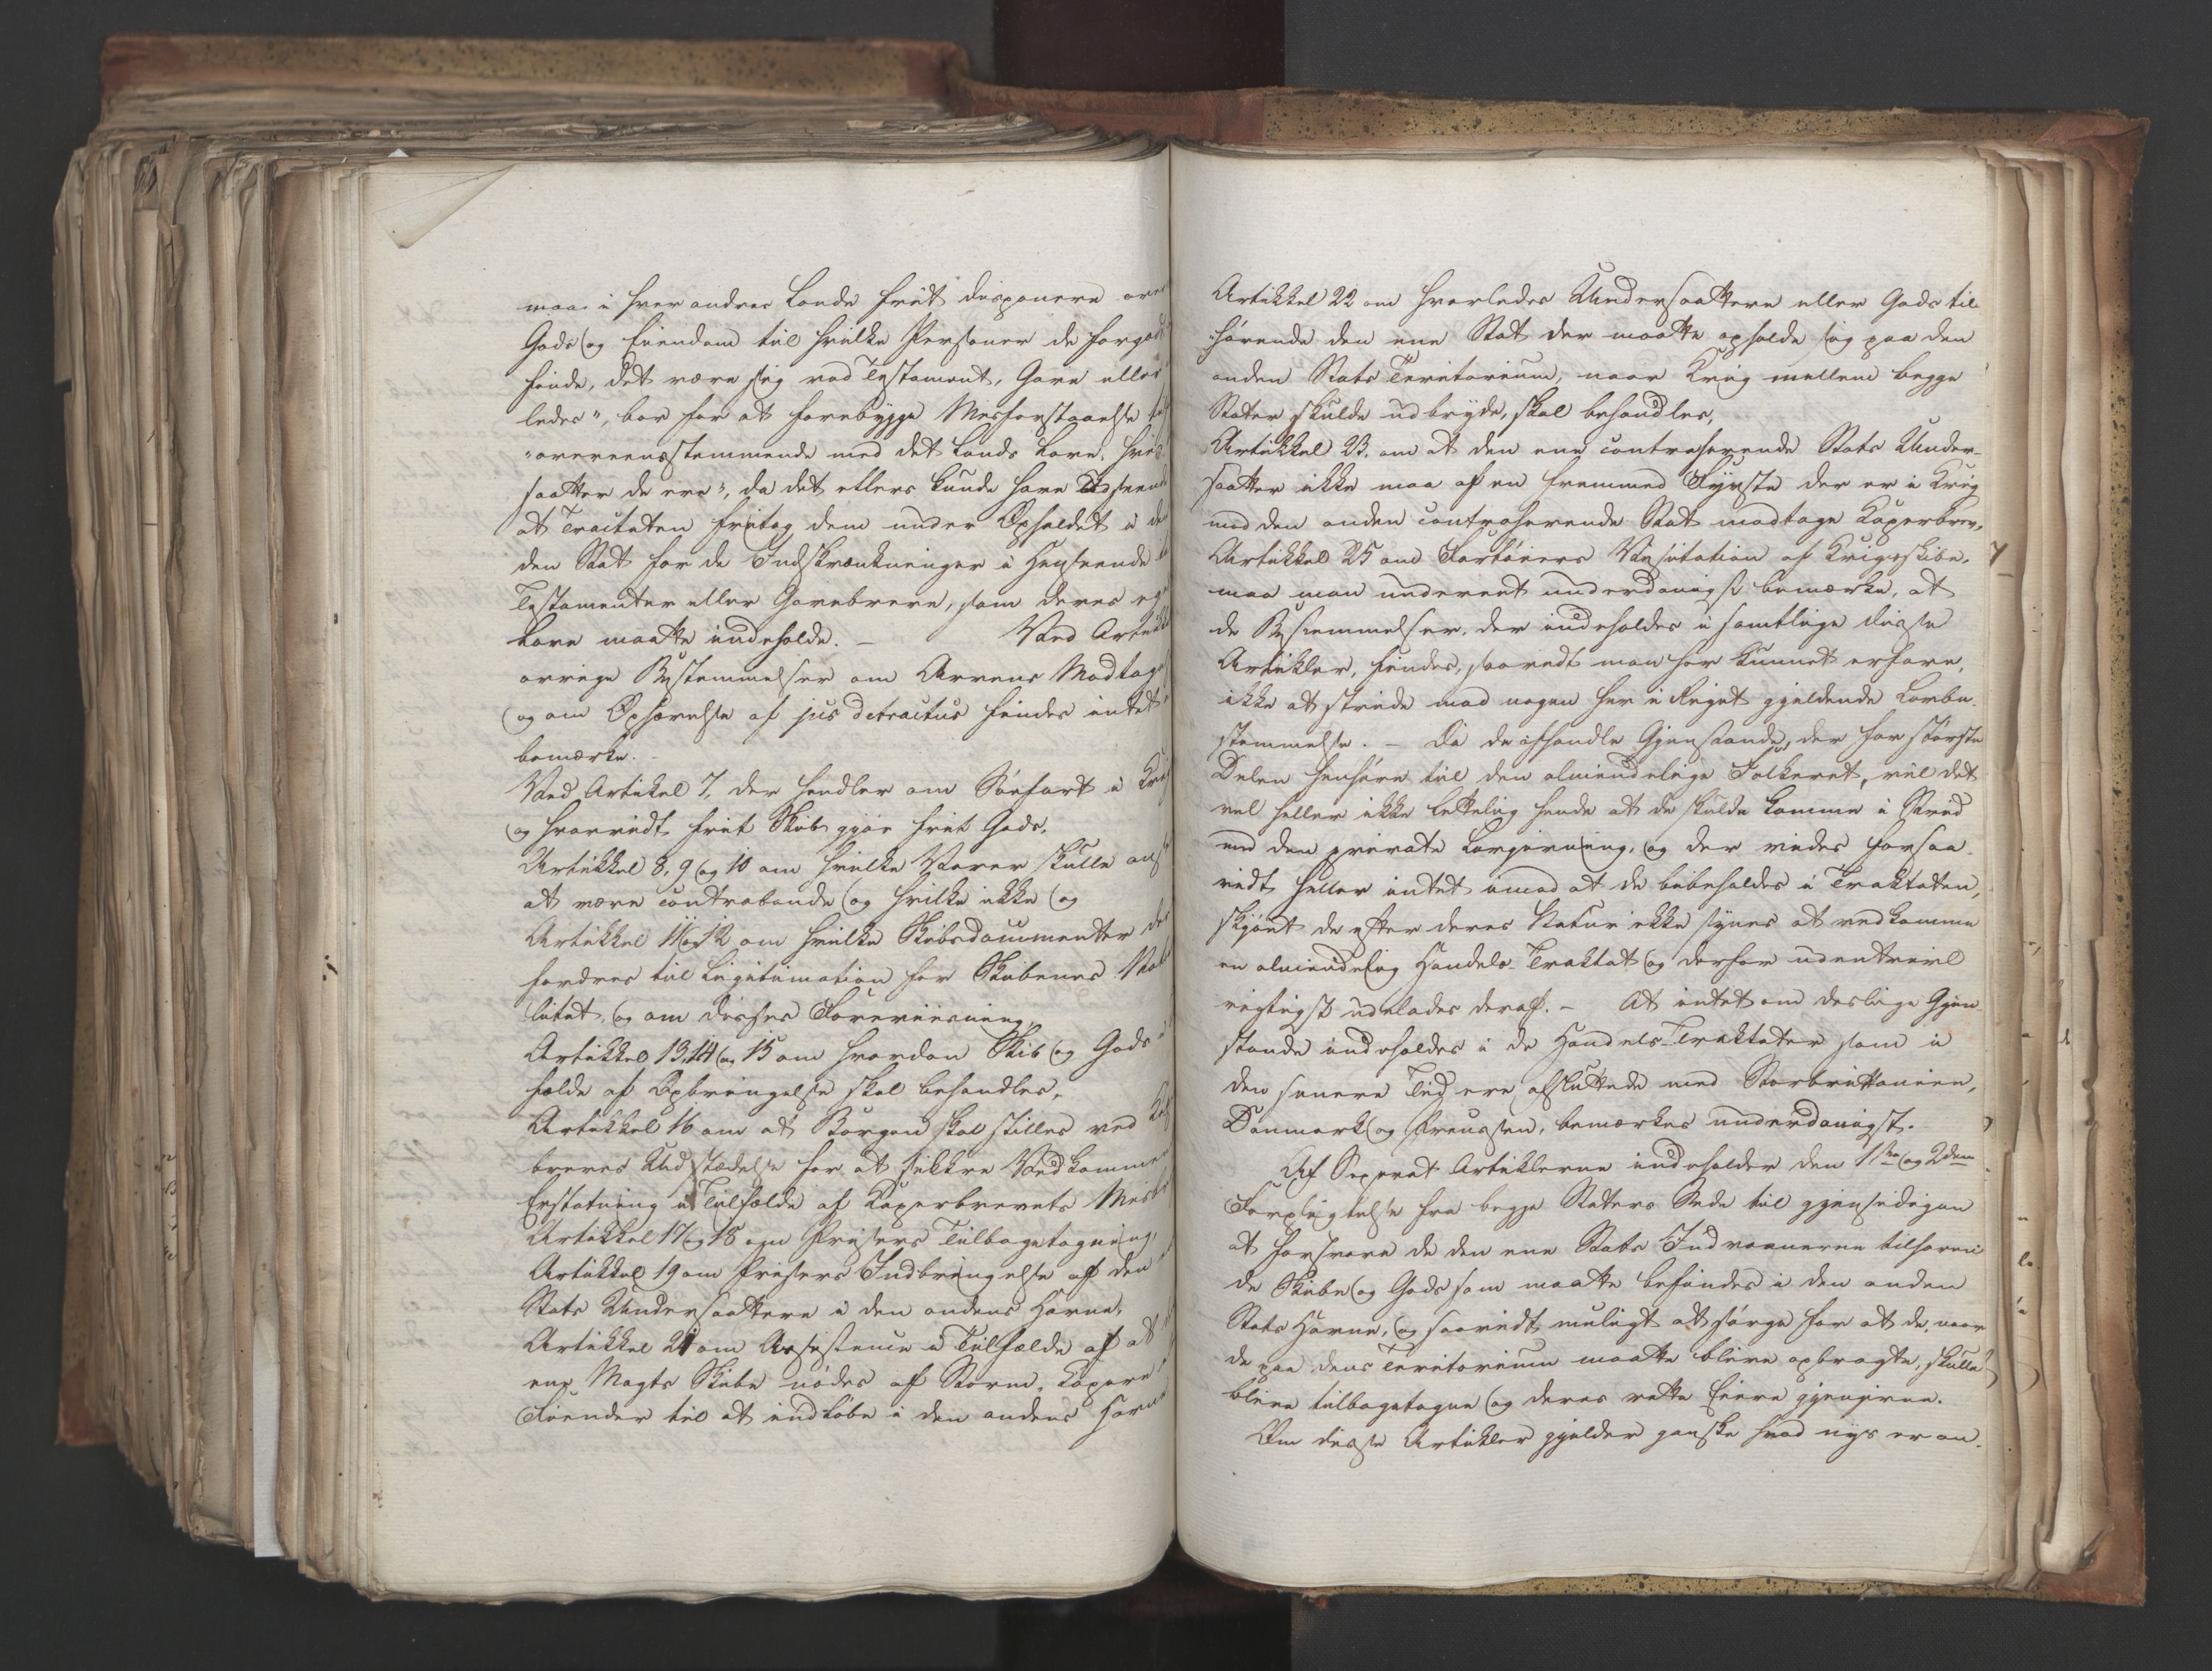 maa i hverandres Lande frit disponere over
Gods og Eiendom til hvilke Personer de forgodt
finde, det være sig ved Testament, Gave eller
ledes", bør for at forebygge Misforstaaelse
"overeensstemmende med det Lands Love, hvis
saatter de ere", da det ellers kunde have Udseende
at Tractaten fritog dem under Opholdet i
den Stat for de Indskrænkninger i Henseende
Testamenter eller Gavebreve, som deres egne
Love maatte indeholde. – Ved Artikkel
øvrige Bestemmelser om Arvens Modtagelse
og om Ophævelse af jus detractus findes intet
bemærke.
Ved Artikel 7, der handler om Søefart i Krig
og hvorvidt frit Skib gjør frit Gods.
Artikkel 8, 9 og 10 om hvilke Varer skulle
at være contrabande og hvilke ikke og
Artikkel 11 og 12 om hvilke Skibsdocumenter der
fordres til Legitimation for Skibenes
litet, og om disses Foreviisning.
Artikkel 13, 14 og 15 om hvordan Skib og Gods i
fælde af Opbringelse skal behandles,
Artikkel 16 om at Borgen skal stilles ved
breves Udstædelse for at sikkre Vedkommen
Erstatning i Tilfælde af Kaperbrevets
Artikkel 17 og 18 om Prisers Tilbagetagning,
Artikkel 19 om Prisers Indbringelse af den
Stats Undersaattere i den andens Havne,
Artikkel 21 om Assistence i Tilfælde af at
ene Magts Skibe nødes af Storm, Kapere
Fiender til at indløbe i den andens Havne
Artikkel 22 om hvorledes Undersaattere eller Gods til
hørende den ene Stat der maatte opholde sig paa den
anden Stats Territorium, naar Krig mellem begge
Stater skulde udbryde, skal behandles,
Artikkel 23. om at den ene contraherende Stats Under-
saatter ikke maa af en fremmed Fyrste der er i Krig
med den anden contraherende Stat modtage Kaperbrev,
Artikkel 25 om Fartøiers Visitation af Krigsskibe.
maa man underrett underdanigst bemærke, at
de Bestemmelser, der indeholdes i samtlige disse
Artikler, findes, saavidt man har kunnet erfare,
ikke at stride mod nogen her i Riget gjeldende Lovbe-
stemmelse. – Da de afhandle Gjenstande, der for største
Delen henhøre til den almindelige Folkeret, vil det
vel heller ikke lettelig hende at de skulde komme i Strid
med den private Lovgivning, og der vides forsaa-
vidt heller intet imod at de bibeholdes i Traktaten,
skjønt de efter deres Natur ikke synes at vedkomme
en almindelig Handels-Traktat og derfor udentvivl
rigtigst udelades deraf. – At intet om deslige Gjen-
stande indeholdes i de Handels-Traktater som i
den senere Tid ere afsluttede med Storbrittanien,
Danmark og Preussen, bemærkes underdanigst.
Af Seperat Artiklerne indeholder den 1ste og 2den
Forpligtelse fra begge Staters Side til gjensidigen
at forsvare de den ene Stats Indvaanere tilhøren
de Skibe og Gods som maatte befindes i den anden
Stats Havne, og saavidt muligt at sørge for at de, naar
de paa dens Territorium maatte blive opbragte, skulle
blive tilbagetagne og deres rette Eiere gjengivne.
Om disse Artikler gjelder ganske hvad nys er an-